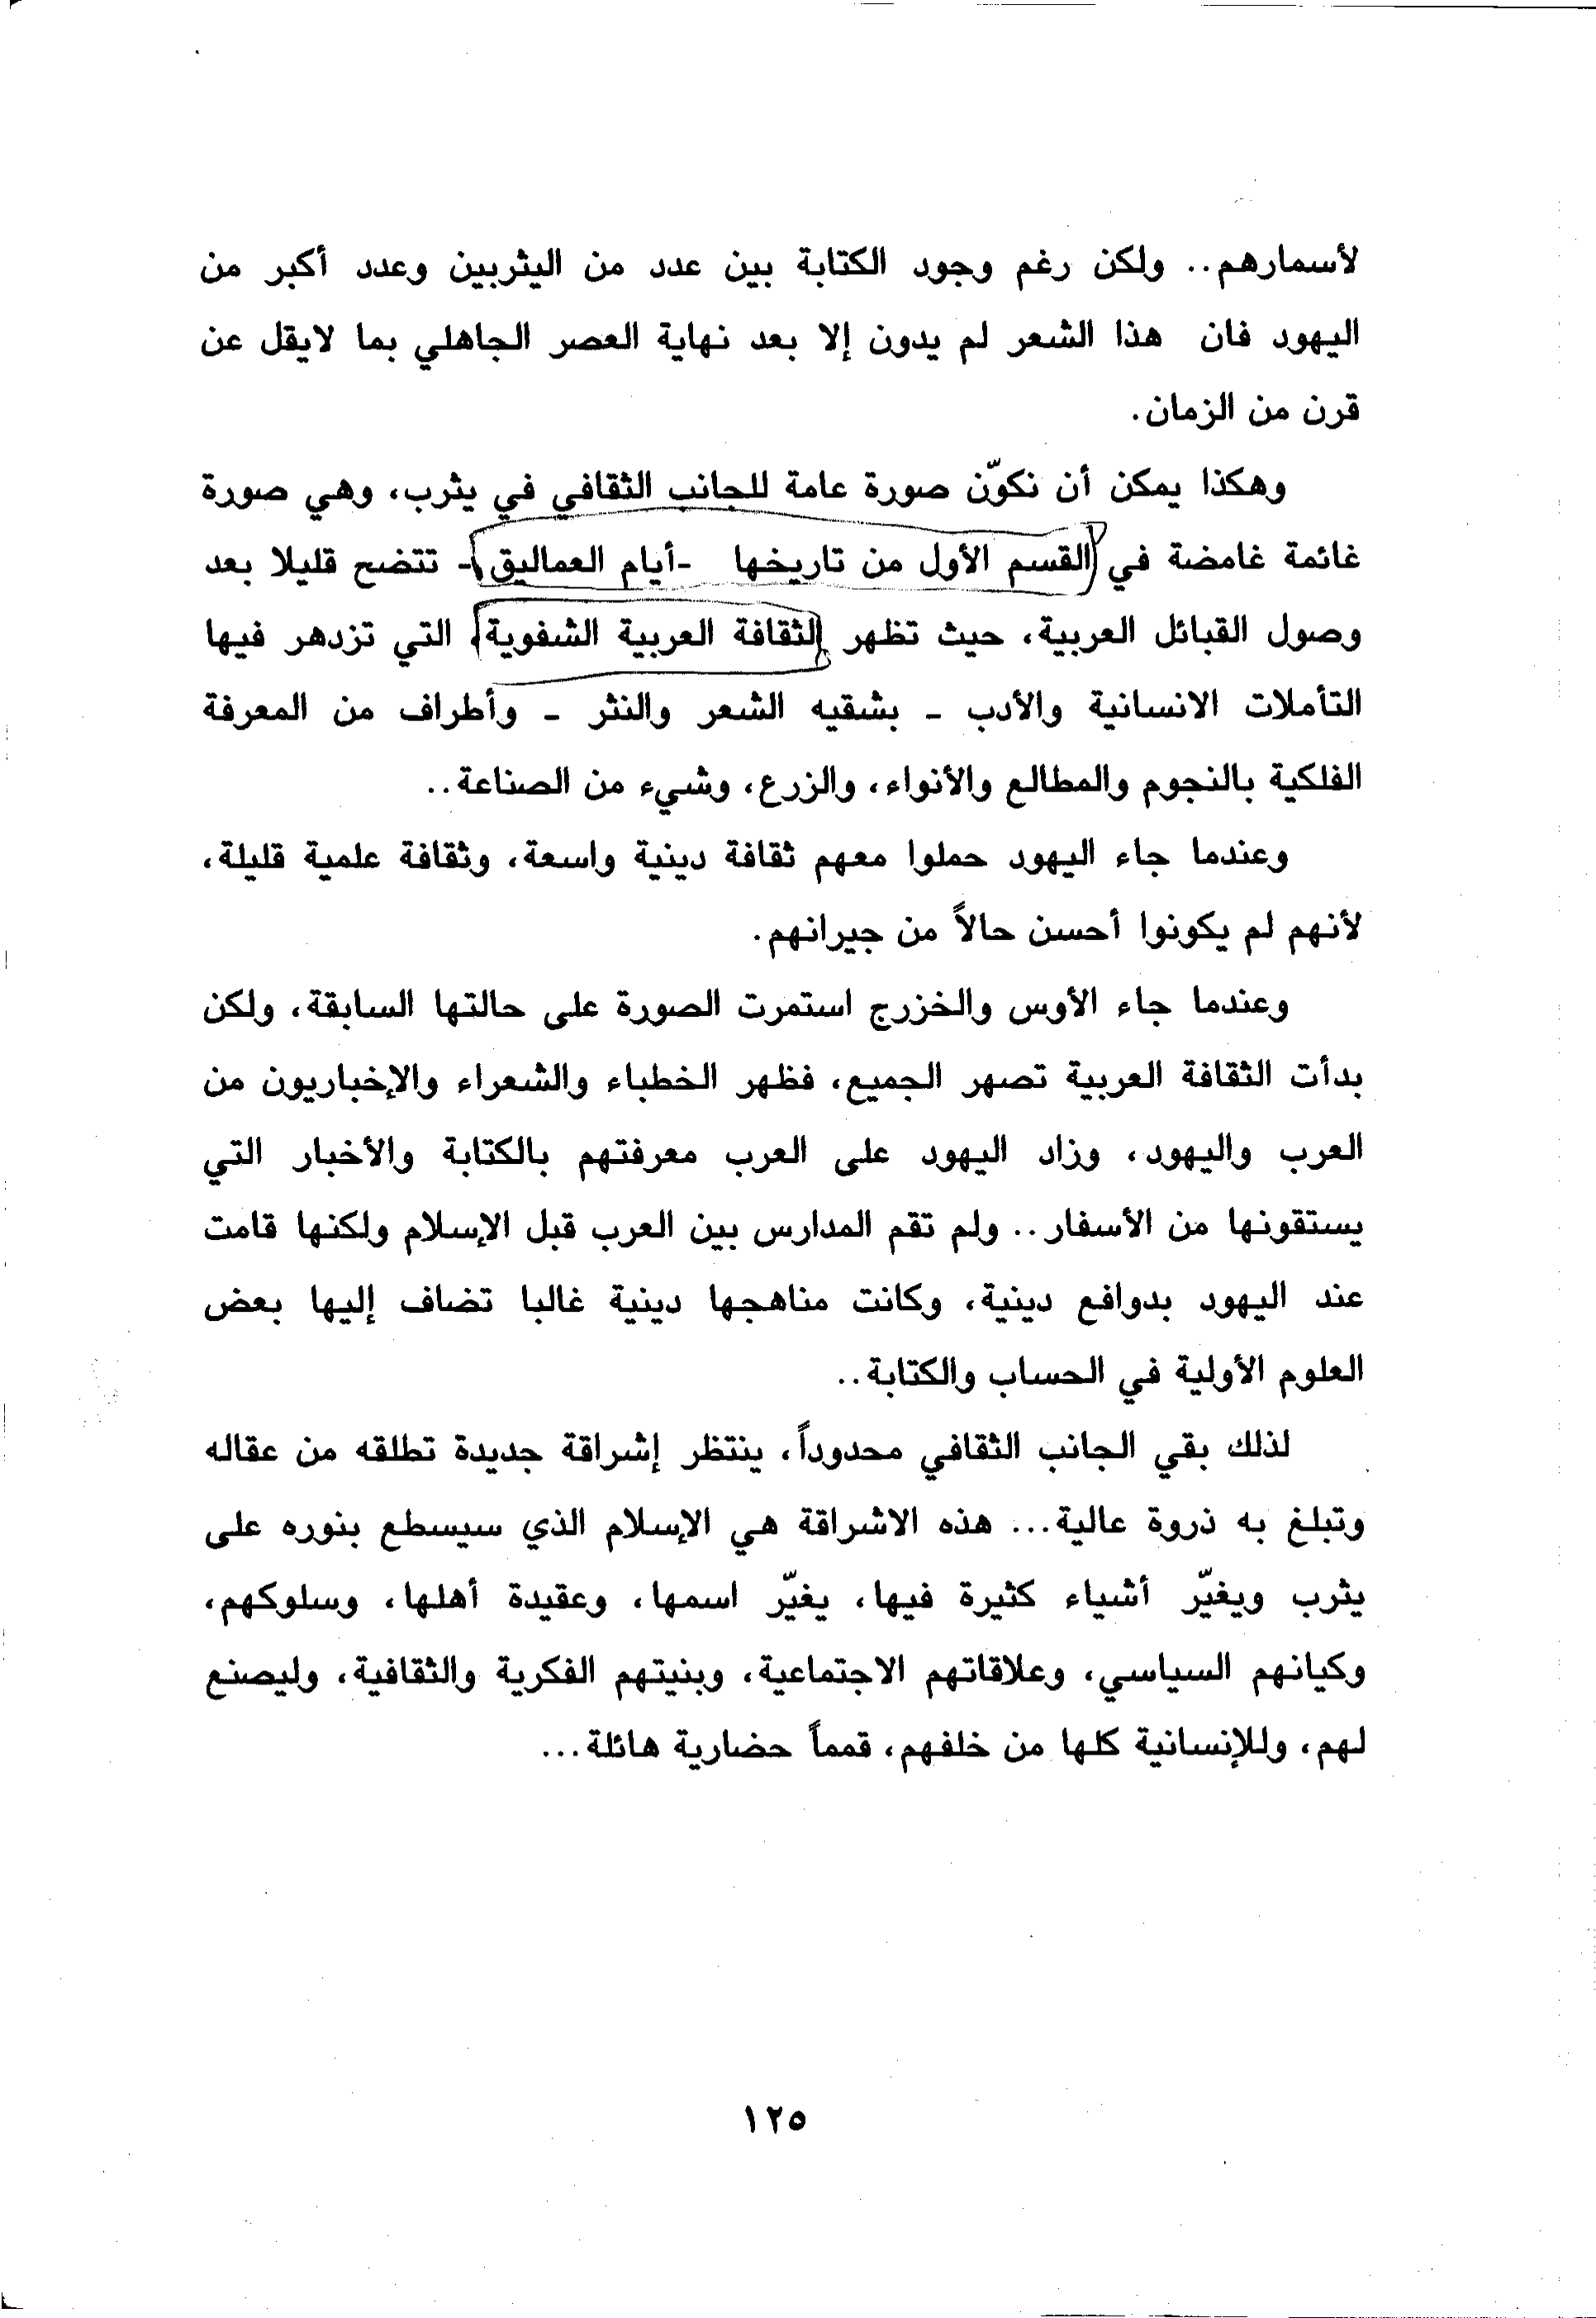 لأسمارهم.. ولكن رغم وجود الكتابة بين عدد من اليثربيين وعدد أكبر من
اليهود فان هذا الشعر لم يدون إلا بعد نهاية العصر الجاهلي بما لايقل عن
قرن من الزمان.
وهكذا يمكن أن نكوّن صورة عامة للجانب الثقافي في يثرب، وهي صورة
غائمة غامضة في القسم الأول من تاريخها -أيام العماليق- تتضح قليلا بعد
وصول القبائل العربية، حيث تظهر الثقافة العربية الشفوية، التي تزدهر فيها
التأملات الانسانية والأدب - بشقيه الشعر والنثر - وأطراف من المعرفة
الفلكية بالنجوم والمطالع والأنواء، والزرع، وشيء من الصناعة..
وعندما جاء اليهود حملوا معهم ثقافة دينية واسعة، وثقافة علمية قليلة،
لأنهم لم يكونوا أحسن حالاً من جيرانهم.
وعندما جاء الأوس والخزرج استمرت الصورة على حالتها السابقة، ولكن
بدأت الثقافة العربية تصهر الجميع، فظهر الخطباء والشعراء والإخباريون من
العرب واليهود، وزاد اليهود على العرب معرفتهم بالكتابة والأخبار التي
يستقونها من الأسفار.. ولم تقم المدارس بين العرب قبل الإسلام ولكنها قامت
عند اليهود بدوافع دينية، وكانت مناهجها دينية غالبا تضاف إليها بعض
العلوم الأولية في الحساب والكتابة..
لذلك بقي الجانب الثقافي محدوداً، ينتظر إشراقة جديدة تطلقه من عقاله
وتبلغ به ذروة عالية... هذه الاشراقة هي الإسلام الذي سيسطع بنوره على
يثرب ويغيّر أشياء كثيرة فيها، يغيّر اسمها، وعقيدة أهلها، وسلوكهم،
وكيانهم السياسي، وعلاقاتهم الاجتماعية، وبنيتهم الفكرية والثقافية، وليصنع
لهم، وللإنسانية كلها من خلفهم، قمماً حضارية هائلة...
١٢٥